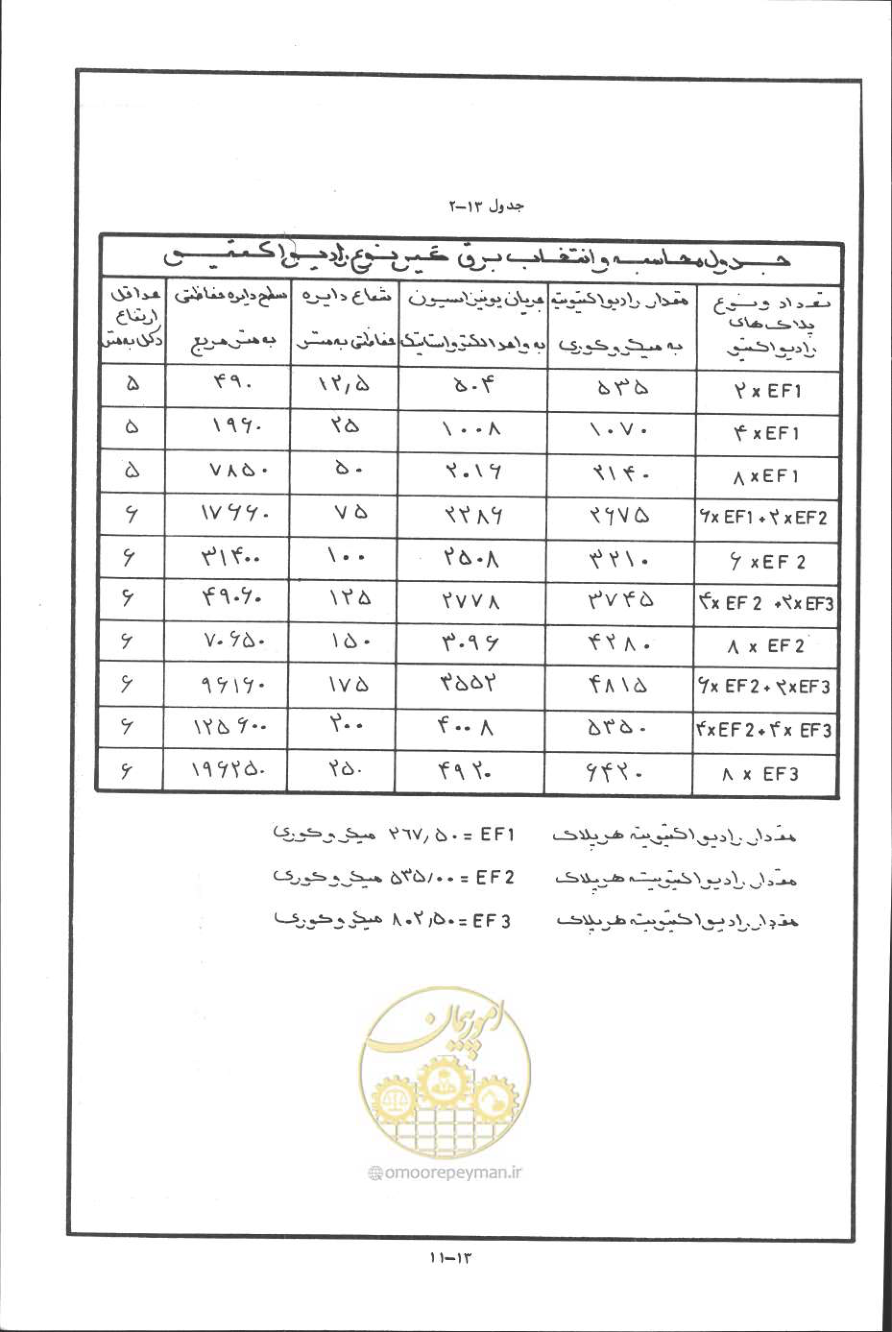 جدول ۱۳-۲
جدول محاسبه و انتخاب برق گیر نوع رادیواکتیو
تعداد و نوع پلاک های رادیواکتیو | مقدار رادیواکتیویته به میکروکوری | جریان یونیزاسیون به واحد الکترواستاتیک | شعاع دایره حفاظتی به متر | سطح دایره حفاظتی به متر مربع | حداقل ارتفاع دکل به متر
۲ x EF1 | ۵۳۵ | ۵۰۴ | ۱۲,۵ | ۴۹۰ | ۵
۴ x EF1 | ۱۰۷۰ | ۱۰۰۸ | ۲۵ | ۱۹۶۰ | ۵
۸ x EF1 | ۲۱۴۰ | ۲۰۱۶ | ۵۰ | ۷۸۵۰ | ۵
۶x EF1 + ۲ x EF2 | ۲۶۷۵ | ۲۲۸۶ | ۷۵ | ۱۷۶۶۰ | ۶
۶ x EF 2 | ۳۲۱۰ | ۲۵۰۸ | ۱۰۰ | ۳۱۴۰۰ | ۶
۴x EF 2 + ۲x EF3 | ۳۷۴۵ | ۲۷۷۸ | ۱۲۵ | ۴۹۰۶۰ | ۶
۸ x EF 2 | ۴۲۸۰ | ۳۰۹۶ | ۱۵۰ | ۷۰۶۵۰ | ۶
۶x EF 2 + ۲xEF3 | ۴۸۱۵ | ۳۵۵۲ | ۱۷۵ | ۹۶۱۶۰ | ۶
۴xEF 2 + ۴x EF3 | ۵۳۵۰ | ۴۰۰۸ | ۲۰۰ | ۱۲۵۶۰۰ | ۶
۸ x EF3 | ۶۴۲۰ | ۴۹۲۰ | ۲۵۰ | ۱۹۶۲۵۰ | ۶
مقدار رادیواکتیویته هر پلاک EF1 = ۲۶۷,۵۰ میکروکوری
مقدار رادیواکتیویته هر پلاک EF2 = ۵۳۵,۰۰ میکروکوری
مقدار رادیواکتیویته هر پلاک EF3 = ۸۰۲,۵۰ میکروکوری
امور پیمان
@omoorepeyman.ir
۱۱-۱۳